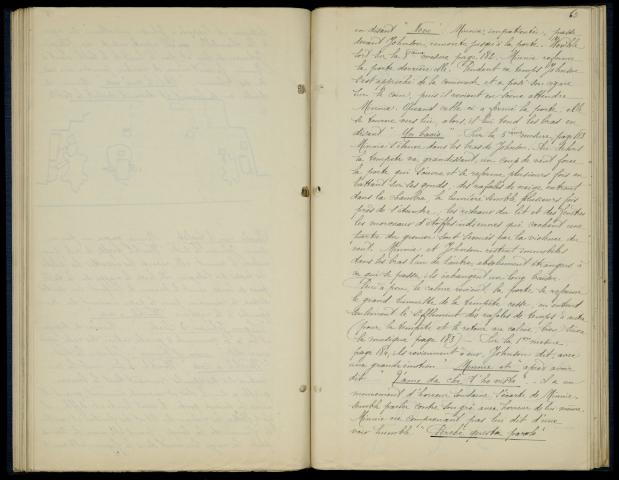 63
en disant "Nove" Minnie, impatientée, passe
devant Johnson, remonte jusqu'à la porte.
sur la 8ème mesure page 182. Minnie referme
la porte derrière elle. Pendant ce temps Johnson
s'est approché de la commode et a posé son cigare
sur le coin, puis il revient en scène attendre
Minnie. Quand celle ci a fermé la porte, elle
se tourne vers lui, alors, il lui tend les bras en
disant "Un bacio". Sur la 5ème mesure, page 183
Minnie s'élance dans les bras de Johnson. Au dehors
la tempête va grandissant, un coup de vent force
la porte qui s'ouvre et se referme plusieurs fois en
battant sur ses gonds, des rafales de neige entrent
dans la chambre, la lumière semble plusieurs fois
près de s'éteindre, les rideaux du lit et des fenêtres
les morceaux d'étoffes indiennes qui cachent une
partie du grenier sont secoués par la violence du
vent. Minnie et Johnson restent immobiles
dans les bras l'un de l'autre, absolument étrangers à
ce qui se passe, ils échangent un long baiser.
Peu à peu, le calme revient, la porte se referme
le grand tumulte de la tempête cesse, on entend
seulement le sifflement des rafales de temps à autre
(pour la tempête et le retour au calme, bien suivre
la musique page 183) - Sur la 1ère mesure
page 184, ils reviennent à eux, Johnson dit, avec
une grande émotion "Minnie ah" après avoir
dit "L'amo da che t'ho vista". il a un
mouvement d'horreur soudaine s'écarte de Minnie,
semble parler contre son gré avec horreur de lui même,
Minnie ne comprenant pas lui dit d'une
voix humble "Perchè questa parola"